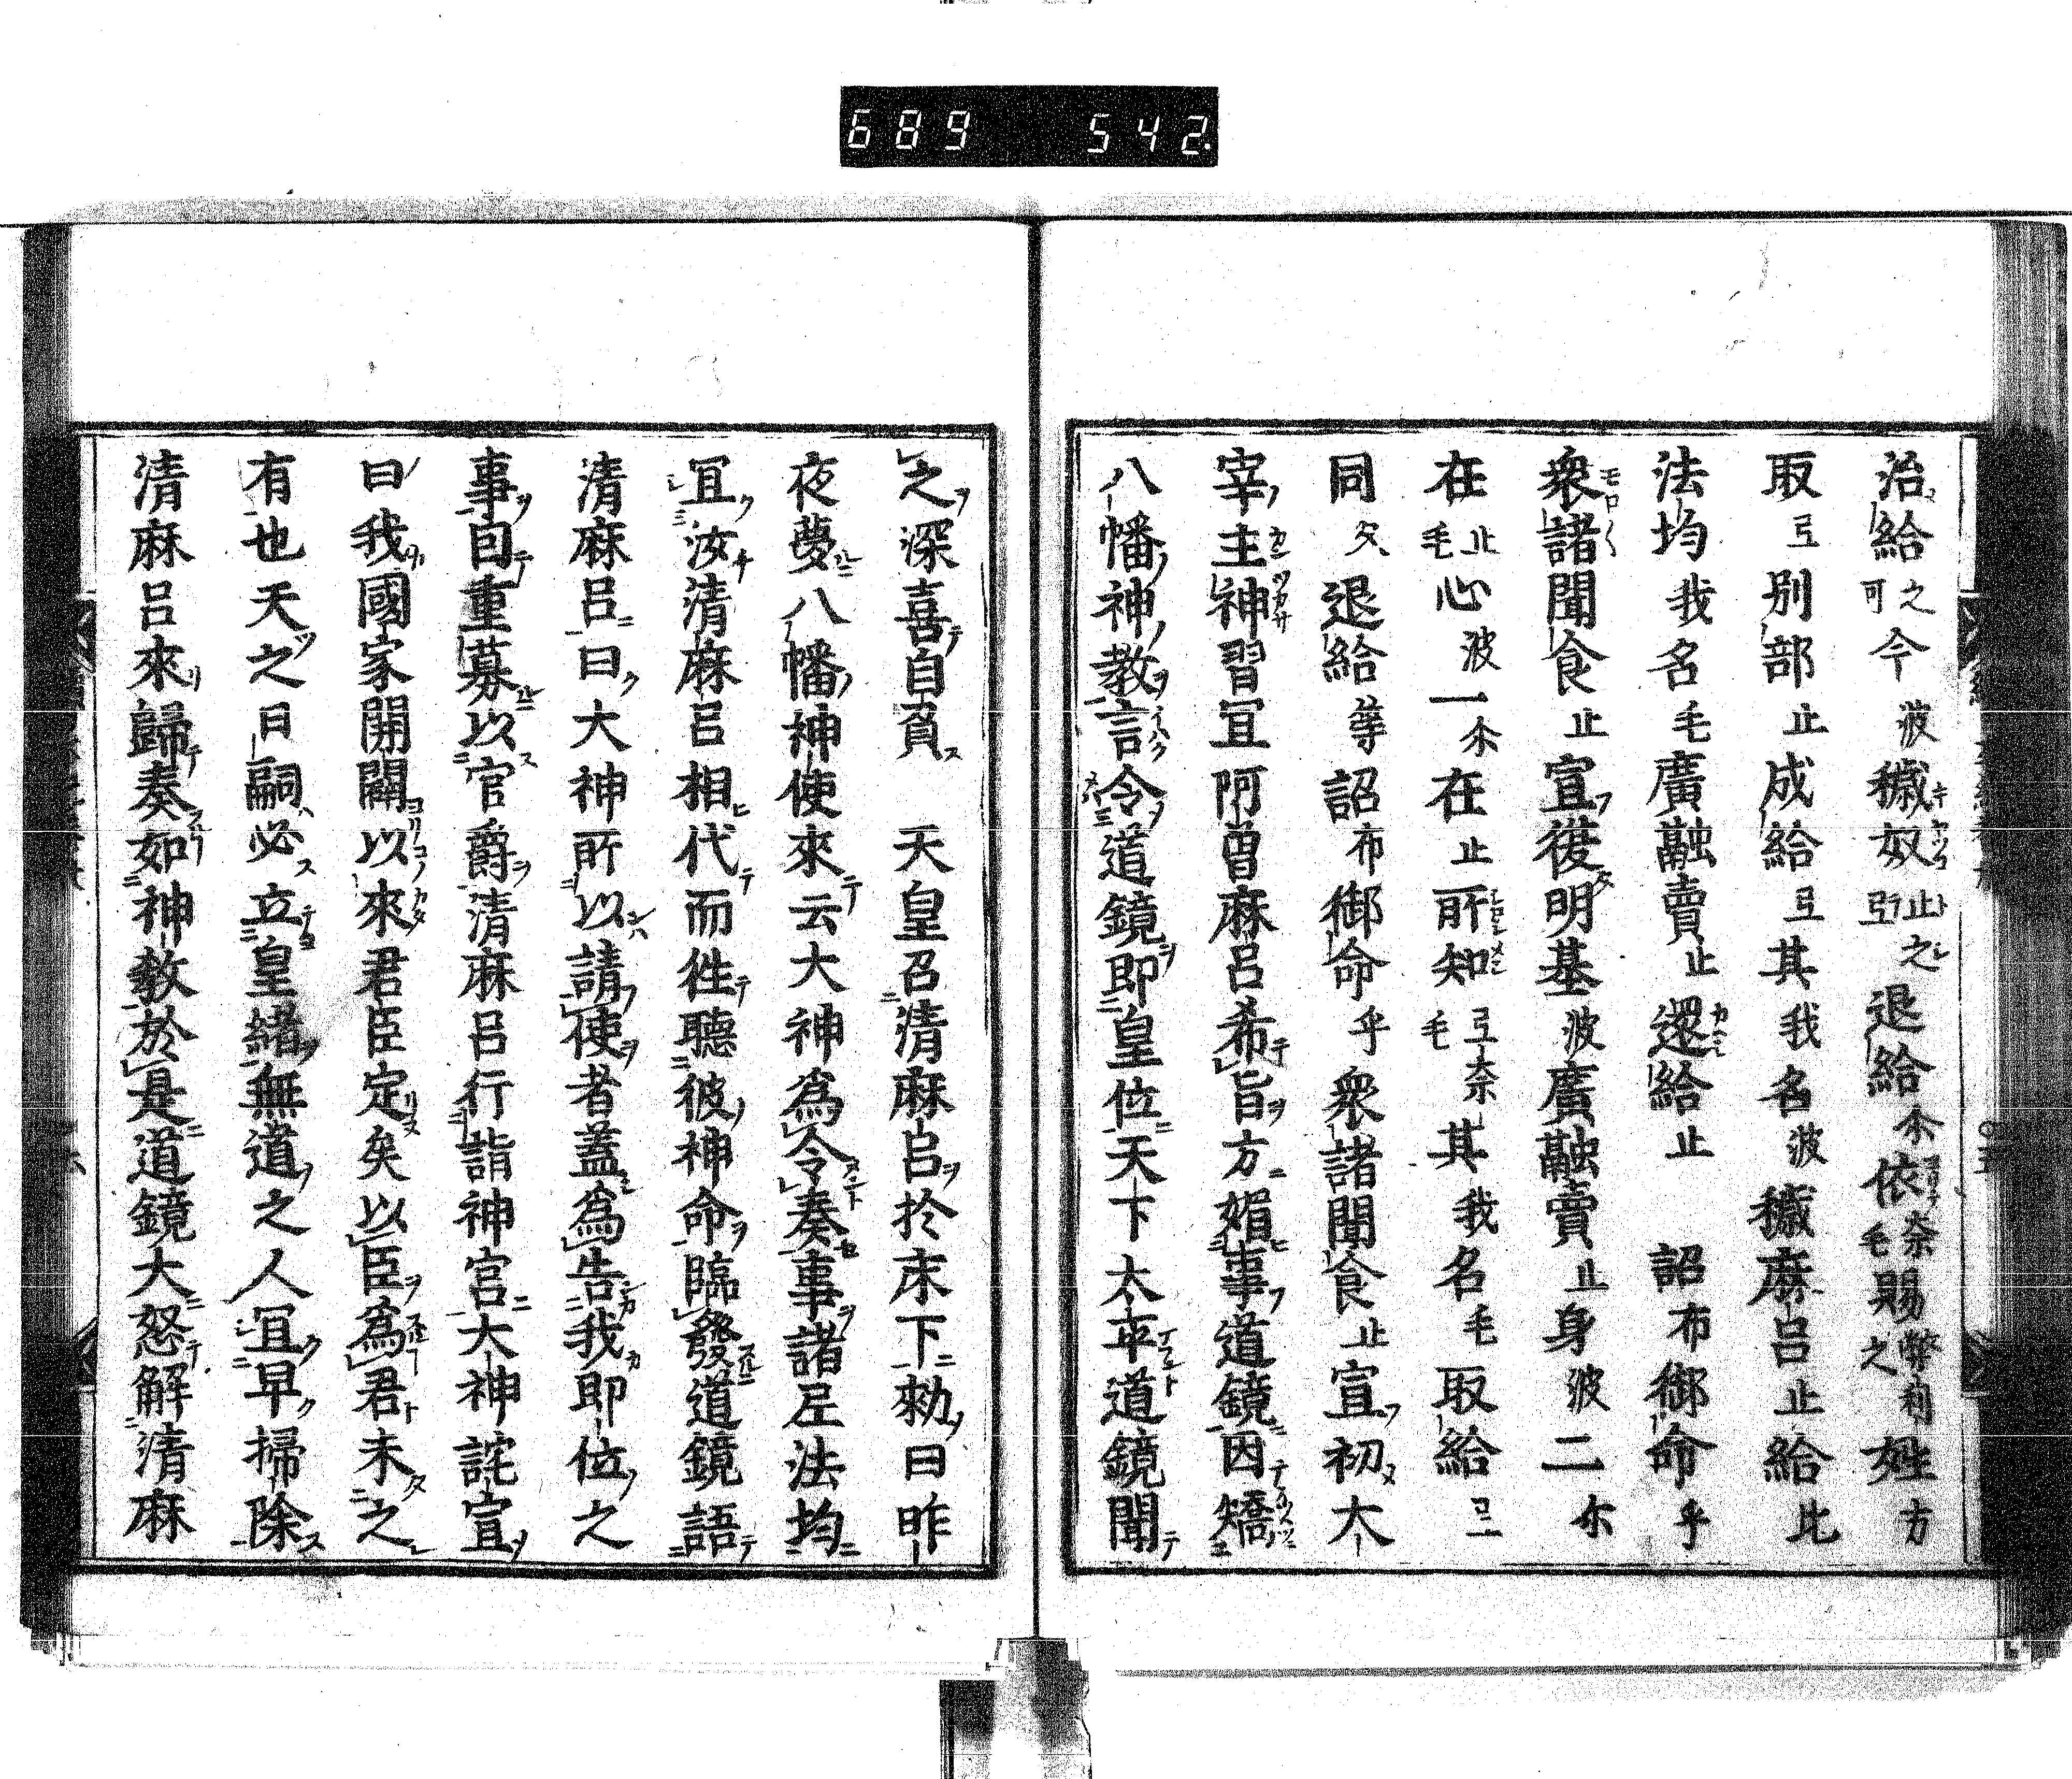 689 542.
治給之可今波穢奴止弖之退給尓依奈毛賜幣利之姓方
取弖別部止成給弖其我名波穢麻呂止給比
法均我名毛廣融賣止還給止詔布御命乎
衆諸聞食止宣復明基波廣融賣止身波二尓
在止毛心波一尓在止所知弖奈毛其我名毛取給弖
同久退給等詔布御命乎衆諸聞食止宣初太
宰主神習冝阿曽麻呂希旨方媚事道鏡因矯
八幡神教言令道鏡即皇位天下太平道鏡聞
之深喜自負 天皇召清麻呂於床下勅曰昨
夜夢八幡神使來云大神爲令奏事諸尼法均
冝汝清麻呂相代而徃聽彼神命臨發道鏡語
清麻呂曰大神所以請使者盖爲告我即位之
事因重募以官爵清麻呂行詣神宮大神詫宣
曰我國家開闢以來君臣定矣以臣爲君未之
有也天之日嗣必立皇緒無道之人冝早掃除
清麻呂來歸奏如神教於是道鏡大怒解清麻